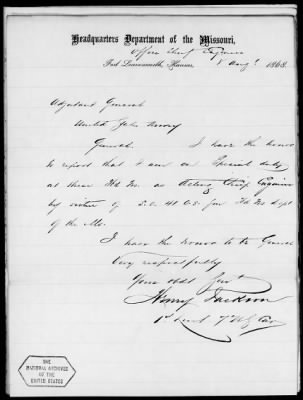 Headquarters Department of the Missouri,
Office Chief Engineer
Fort Leavenworth, Kansas, 8 Aug. 1868.
Adjutant General
United States Army
General. I have the honor
to report that I am on Special duty
at these Hd Qrs. as Acting Chief Engineer
by virtue of S.O. 48 C.S. from Hd Qrs Dept
of the Mo.
I have the honor to be General
Very respectfully
Your obdt Servt
Henry Jackson
1st Lieut 7" U.S. Cav
THE
NATIONAL ARCHIVES
OF THE
UNITED STATES